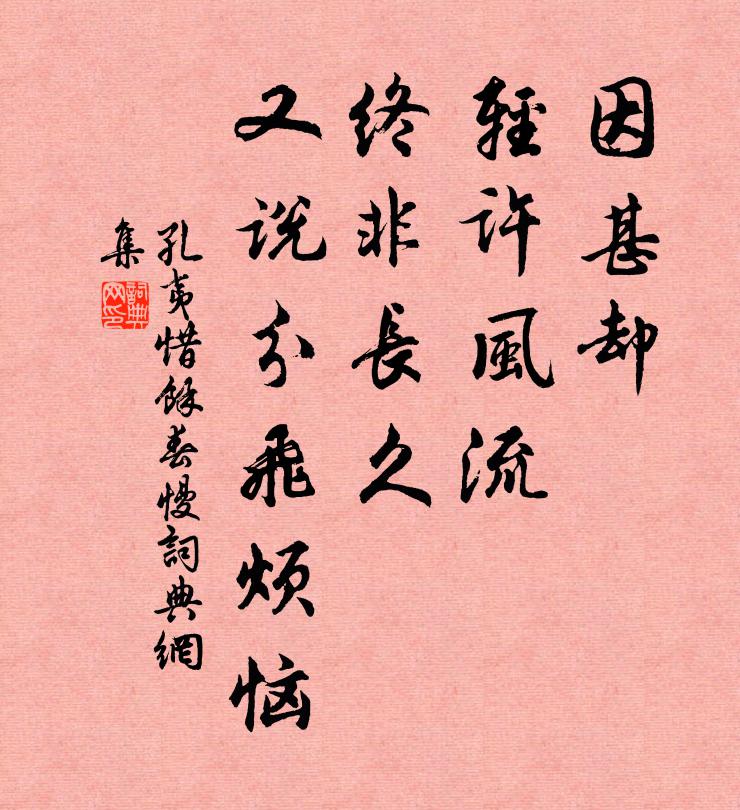 因甚却
輕許風流
終非長久
又说分飛烦恼
孔夷惜餘春慢詞典網
集
詞典
网印